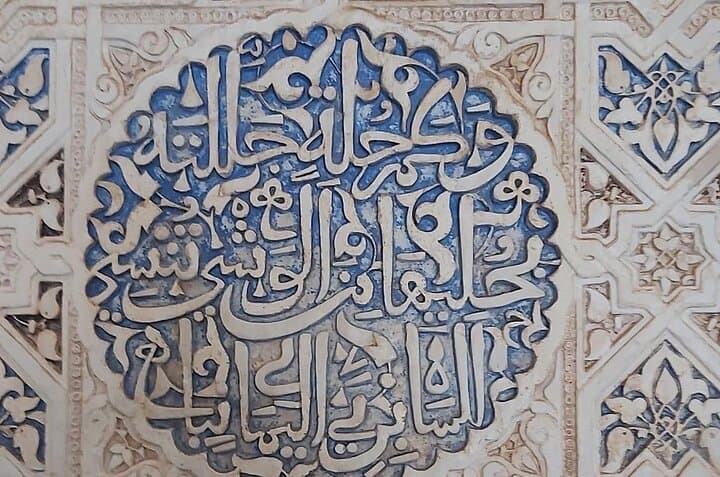 وَكَم حُلَّةٍ جَلَّلتَهُ
بحُليِّها مِن الوَشي تُنسي
السابِرِيّ اليمانِيا